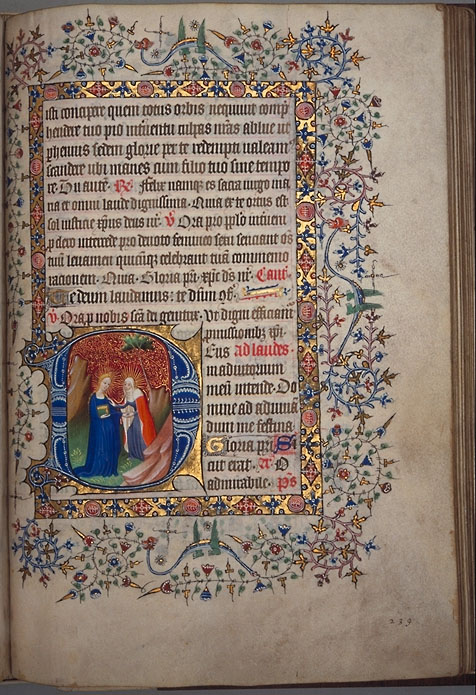 ista concipere quem totus orbis nequivit comp
hendere tuo pio interuentu culpas nras ablue ut
phennis sedem glorie per te redempti valeam
scandere ubi manes cum filio tuo sine tempo
re. Du autē. Re. felix namqꝫ es sacra virgo ma
ria et omni laude dignissima. Quia ex te ortus est
sol iusticie xp̄us deus nr̄. V Ora pro pplo interueni
p clero intercede pro deuoto femineo sexu senciant oēs
tuū leuamen quicūqꝫ celebrant tuam commemo
rationem. Quia. Gloria pr̄i.
Te deum laudamus: te dūm
V Ora p nobis scā dei genitrix. Vt digni efficiam
pmissionibꝫ xp̄i.
Eus ad laudes.
in adiutorium
meū intende. Do
mine ad adiuuā
dum me festina
Gloria pr̄i. Si
cut erat. a. O
admirabile. ps
239